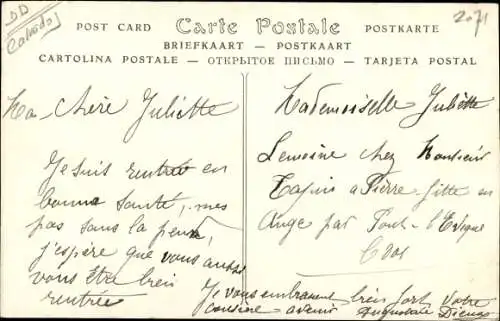 DD
Calvados
2071
POST CARD Carte Postale POSTKARTE
BRIEFKAART — POSTKAART
CARTOLINA POSTALE — ОТКРЫТОЕ ПИСЬМО — TARJETA POSTAL
Ma Chère Juliette
Je suis rentrée en
bonne santé, mes
pas sans la peine,
j'espère que vous aussi
vous êtes bien
rentrée
Mademoiselle Juliette
Lemoine chez Monsieur
à Pierre fitte en
Auge par Pont-l'Evêque
Cvos
Je vous embrassent bien fort votre
cousine avenir Augustine